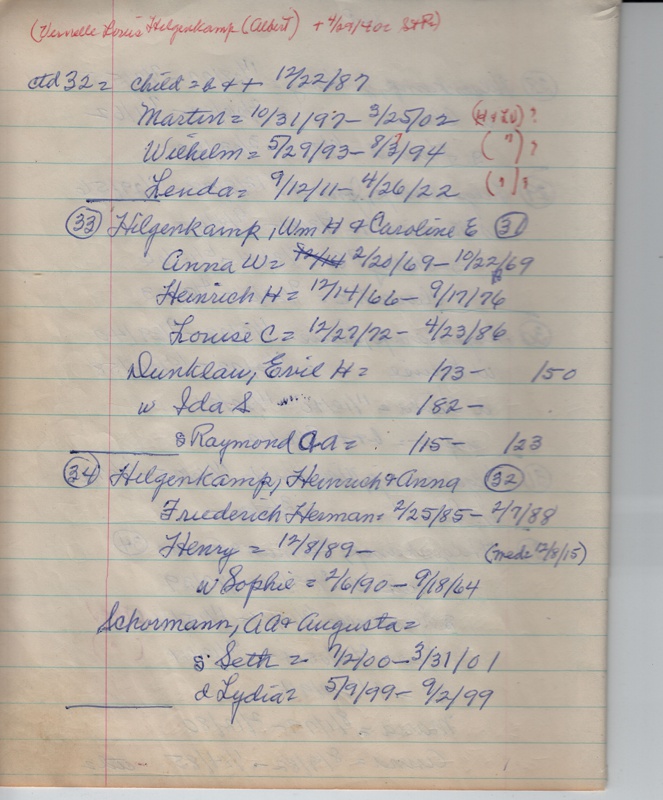 (Vernelle Louis Hilgenkamp (Albert) + 4/29/40c St Pe)
ctd 32 = child = b + + 12/22/87
Martin = 10/31/97 - 3/25/02 (H + LD) ?
Wilhelm = 5/29/93 - 8/3/94 ( " ) ?
Lenda = 9/12/11 - 4/26/22 ( " ) ?
33 Hilgenkamp, Wm H & Caroline E 31
Anna W = 2/20/69 - 10/22/69
Heinrich H = 12/14/66 - 9/17/76
Louise C = 12/27/72 - 4/23/86
Dunklau, Evil H = /73 - /50
w Ida S /82 -
s Raymond GA = /15 - /23
34 Hilgenkamp, Heinrich & Anna 32
Friederich Herman = 2/25/85 - 2/7/88
Henry = 12/8/89 - (mede 12/8/15)
w Sophie = 2/6/90 - 9/18/64
Schormann, AA & Augusta =
s Seth = 7/2/00 - 3/31/01
d Lydia = 5/9/99 - 9/2/99